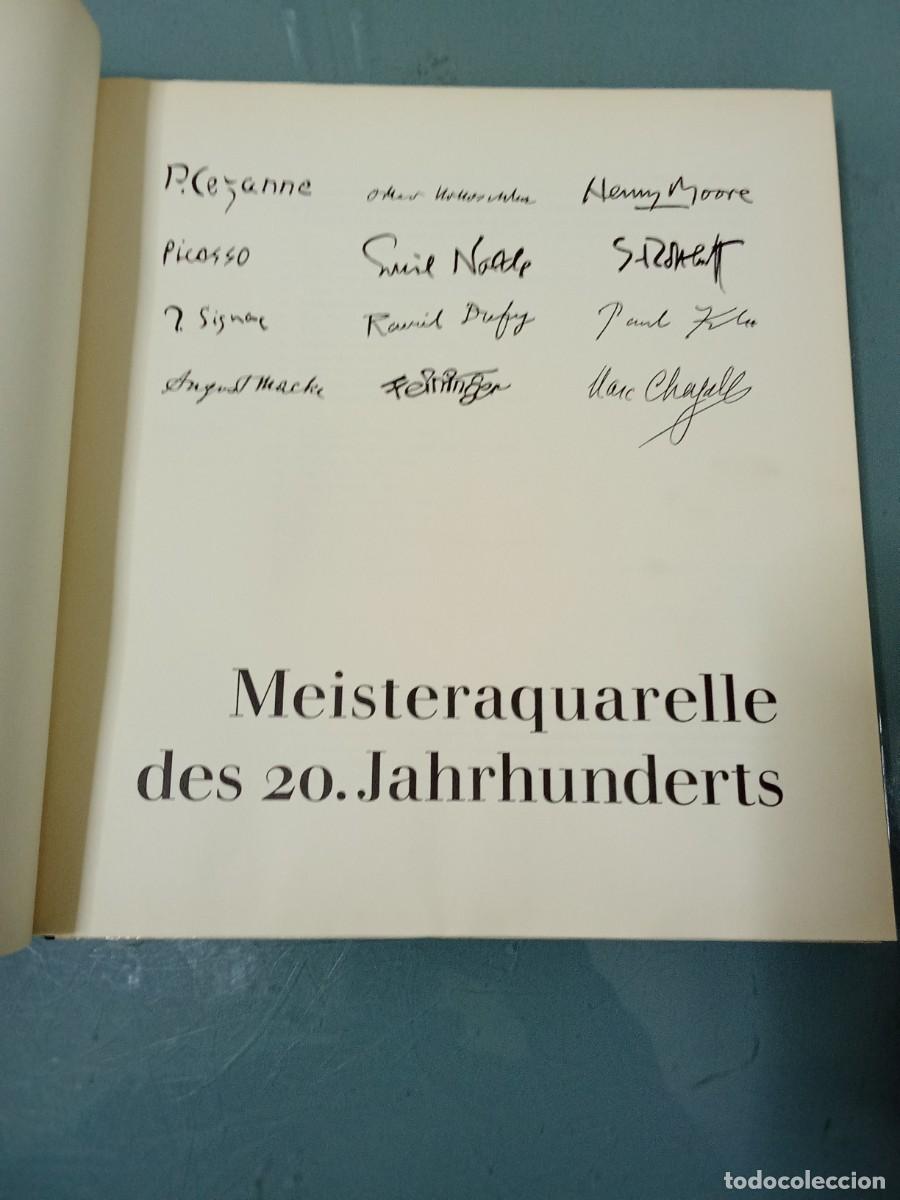 P. Cezanne
Picasso
P. Signac
August Macke
Emil Nolde
Raoul Dufy
Feininger
Henry Moore
Paul Klee
Marc Chagall
Meisteraquarelle
des 20. Jahrhunderts
todocoleccion